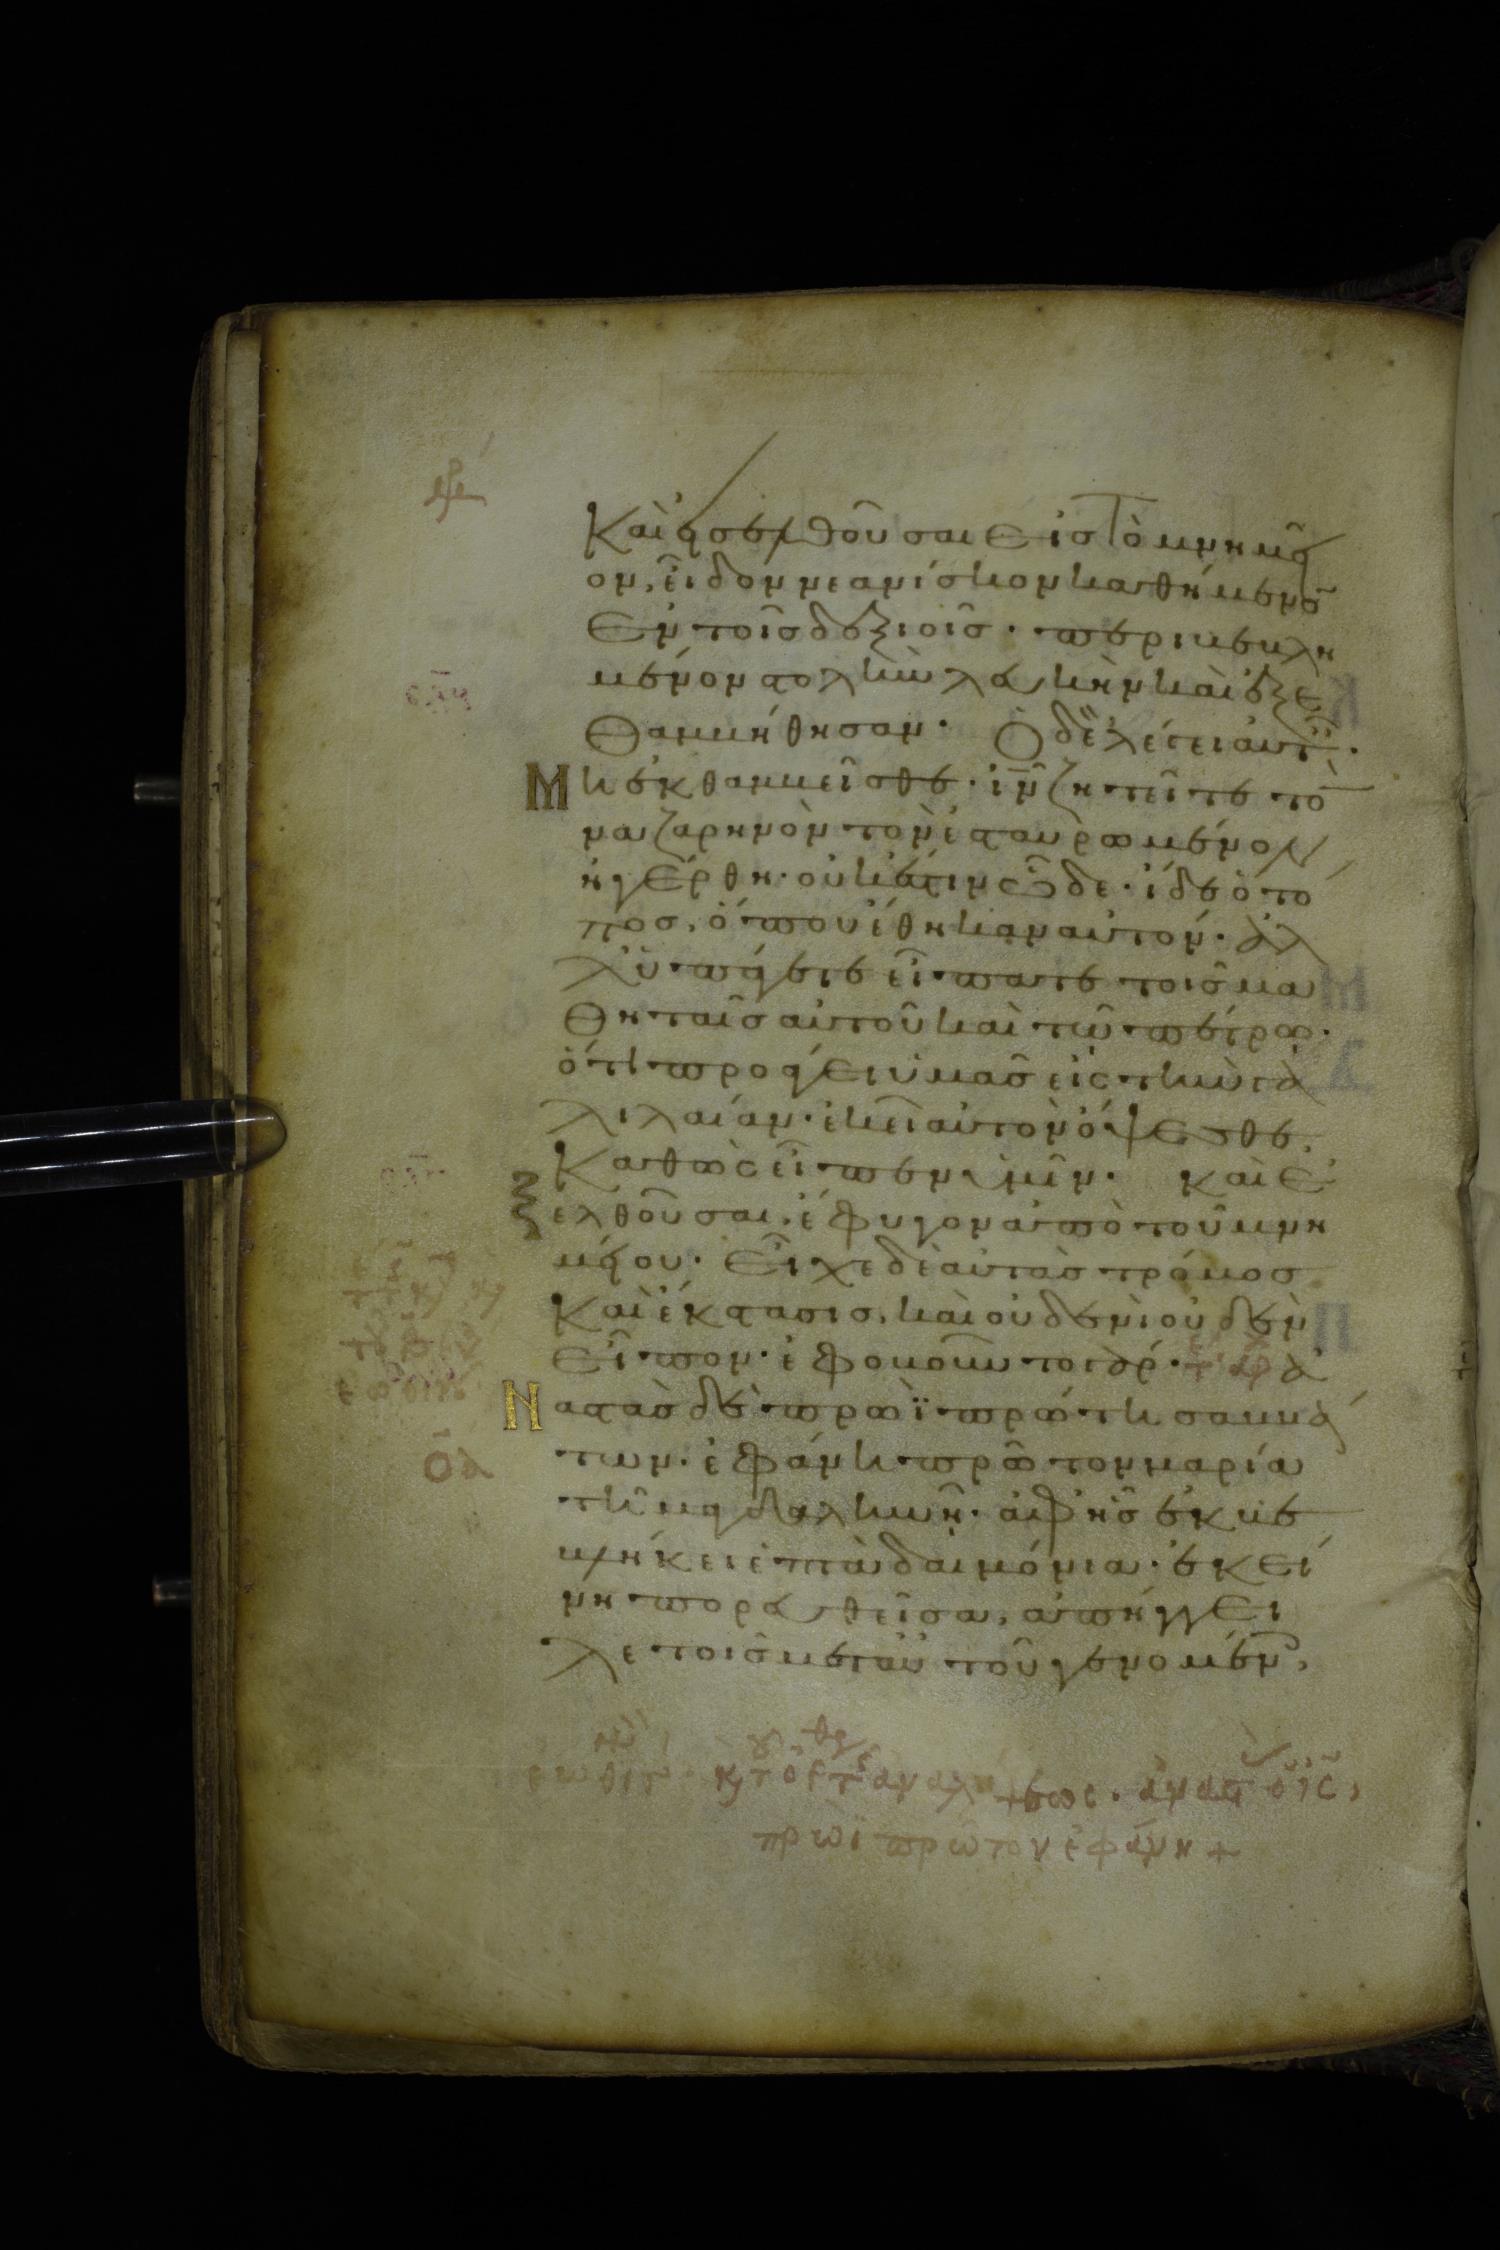 Καὶ εἰσελθοῦσαι εἰς τὸ μνημεῖ
ον, εἶδον νεανίσκον καθήμενο̄
ἐν τοῖς δεξιοῖς· περιβεβλη
μένον στολὴν λευκὴν καὶ ἐξε
θαμβήθησαν· Ὁ δὲ λέγει αὐταῖς·
Μὴ ἐκθαμβεῖσθε· ἰῡ ζητεῖτε τὸ̄
ναζαρηνὸν τὸν ἐσταυρωμένον
ἠγέρθη· οὐκ ἔστιν ὧδε· ἴδε ὁ τό
πος, ὅπου ἔθηκαν αὐτόν· ἀλ
λ' ὑπάγετε εἴπατε τοῖς μα
θηταῖς αὐτοῦ καὶ τῶ πέτρω·
ὅτι προάγει ὑμᾶς εἰς τὴν γα
λιλαίαν· ἐκεῖ αὐτὸν ὄψεσθε.
Καθὼς εἶπεν ὑμῖν· καὶ ἐ
ξελθοῦσαι, ἔφυγον ἀπὸ τοῦ μνη
μείου· Εἶχε δὲ αὐτὰς τρόμος
Καὶ ἔκστασις, καὶ οὐδενὶ οὐδὲν
εἶπον· ἐφοβοῦντο γάρ· Ἀ
Ναστὰς δὲ πρωῒ πρώτη σαββά
των· ἐφάνη πρῶτον μαρία
τῆ μαγδαληνῆ· ἀφ' ἧς ἐκβε
βλήκει ἑπτὰ δαιμόνια· ἐκεί
νη πορευθεῖσα, ἀπήγγει
λε τοῖς μετ' αὐτοῦ γενομέν,
ἀναστ ὁ ις,
πρωῒ πρῶτον ἐφάνη +